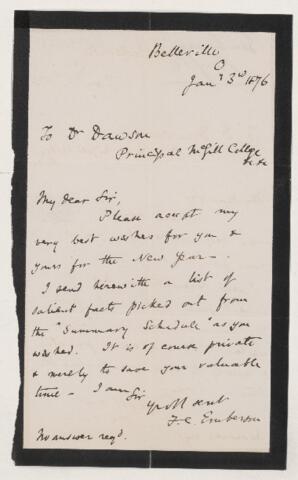 Belleville
O
Jany 3rd 1876
To Dr Dawson
Principal McGill College
&c &c
My dear Sir,
Please accept my
very best wishes for you &
yours for the New Year —
I send herewith a list of
salient facts picked out from
the "Summary Schedule" as you
wished. It is of course private
& merely to save your valuable
time — I am Sir
yr obt sert
F. C. Emberson
No answer reqd.